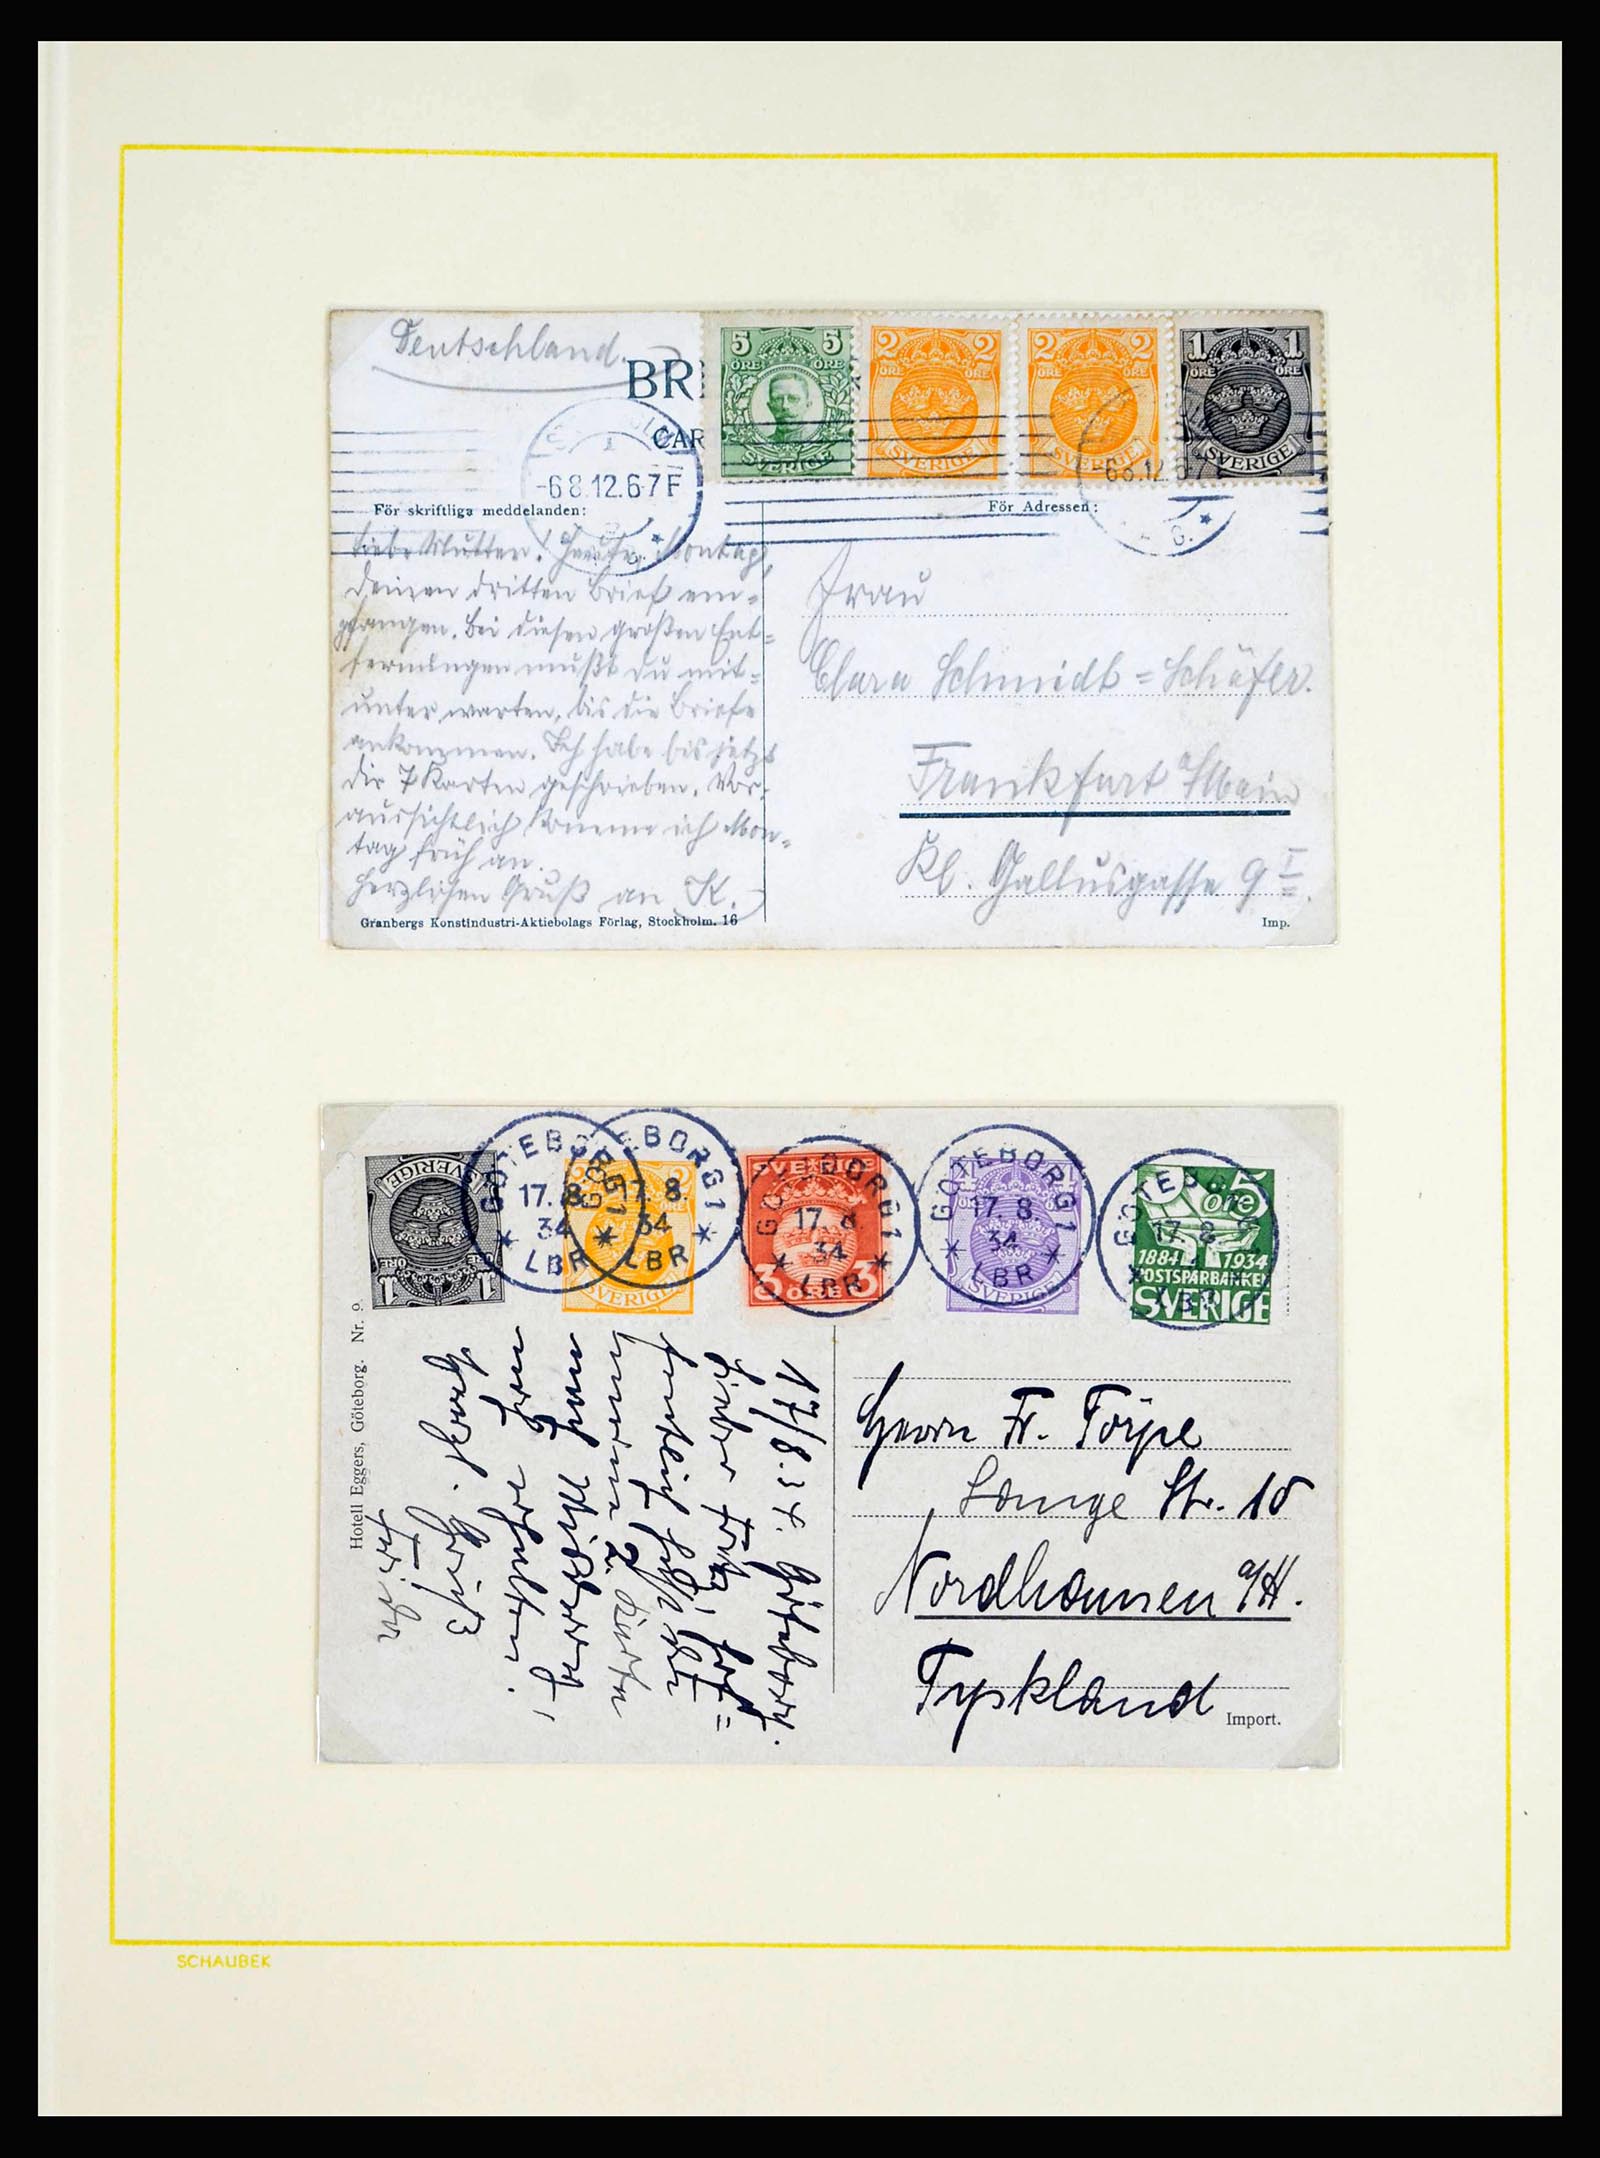 Deutschland.
BR
CAR
5 5
ÖRE ÖRE
SVERIGE
2 2
ÖRE ÖRE
SVERIGE
2 2
ÖRE ÖRE
SVERIGE
1 1
ÖRE ÖRE
SVERIGE
-6 8.12.6-7 F
För skriftliga meddelanden:
För Adressen:
Liebe Mutter! Heute, Montag,
deinen dritten Brief em-
pfangen. Bei diesen großen Ent-
fernungen mußt du mit-
unter warten, bis die Briefe
ankommen. Ich habe bis jetzt
dir 7 Karten geschrieben. Vor-
aussichtlich komme ich Mon-
tag früh an.
Herzlichen Gruß an K.
Frau
Clara Schmidt=Schäfer.
Frankfurt a/Main
Kl. Gallusgasse 9 I
Granbergs Konstindustri-Aktiebolags Förlag, Stockholm. 16
Imp.
SVERIGE
ÖRE
1 1
GÖTEBORG 1
17. 8.
34
LBR
2
ÖRE
SVERIGE
GÖTEBORG 1
17. 8.
34
LBR
SVERIGE
3 ÖRE 3
GÖTEBORG 1
17. 8.
34
LBR
4
SVERIGE
GÖTEBORG 1
17. 8
34
LBR
5 öre
1884 1934
POSTSPARBANKEN
SVERIGE
GÖTEBORG
17. 8
Hotell Eggers, Göteborg. Nr. 9.
17/8.34. Göteborg.
Lieber Fritz!
2
Gruß
Herrn Fr. Törpe
Lange Str. 10
Nordhausen a/H.
Tyskland
Import.
SCHAUBEK